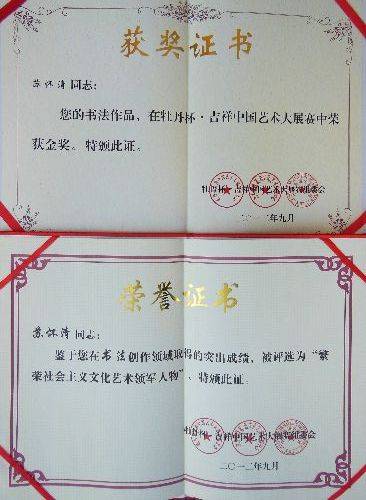 获奖证书
苏怀清 同志：
您的书法作品，在牡丹杯·吉祥中国艺术大展赛中荣
获金奖。特颁此证。
牡丹杯·吉祥中国艺术大展赛组委会
二〇一二年九月
荣誉证书
苏怀清 同志：
鉴于您在书法创作领域取得的突出成绩，被评选为“繁
荣社会主义文化艺术领军人物”，特颁此证。
牡丹杯·吉祥中国艺术大展赛组委会
二〇一二年九月